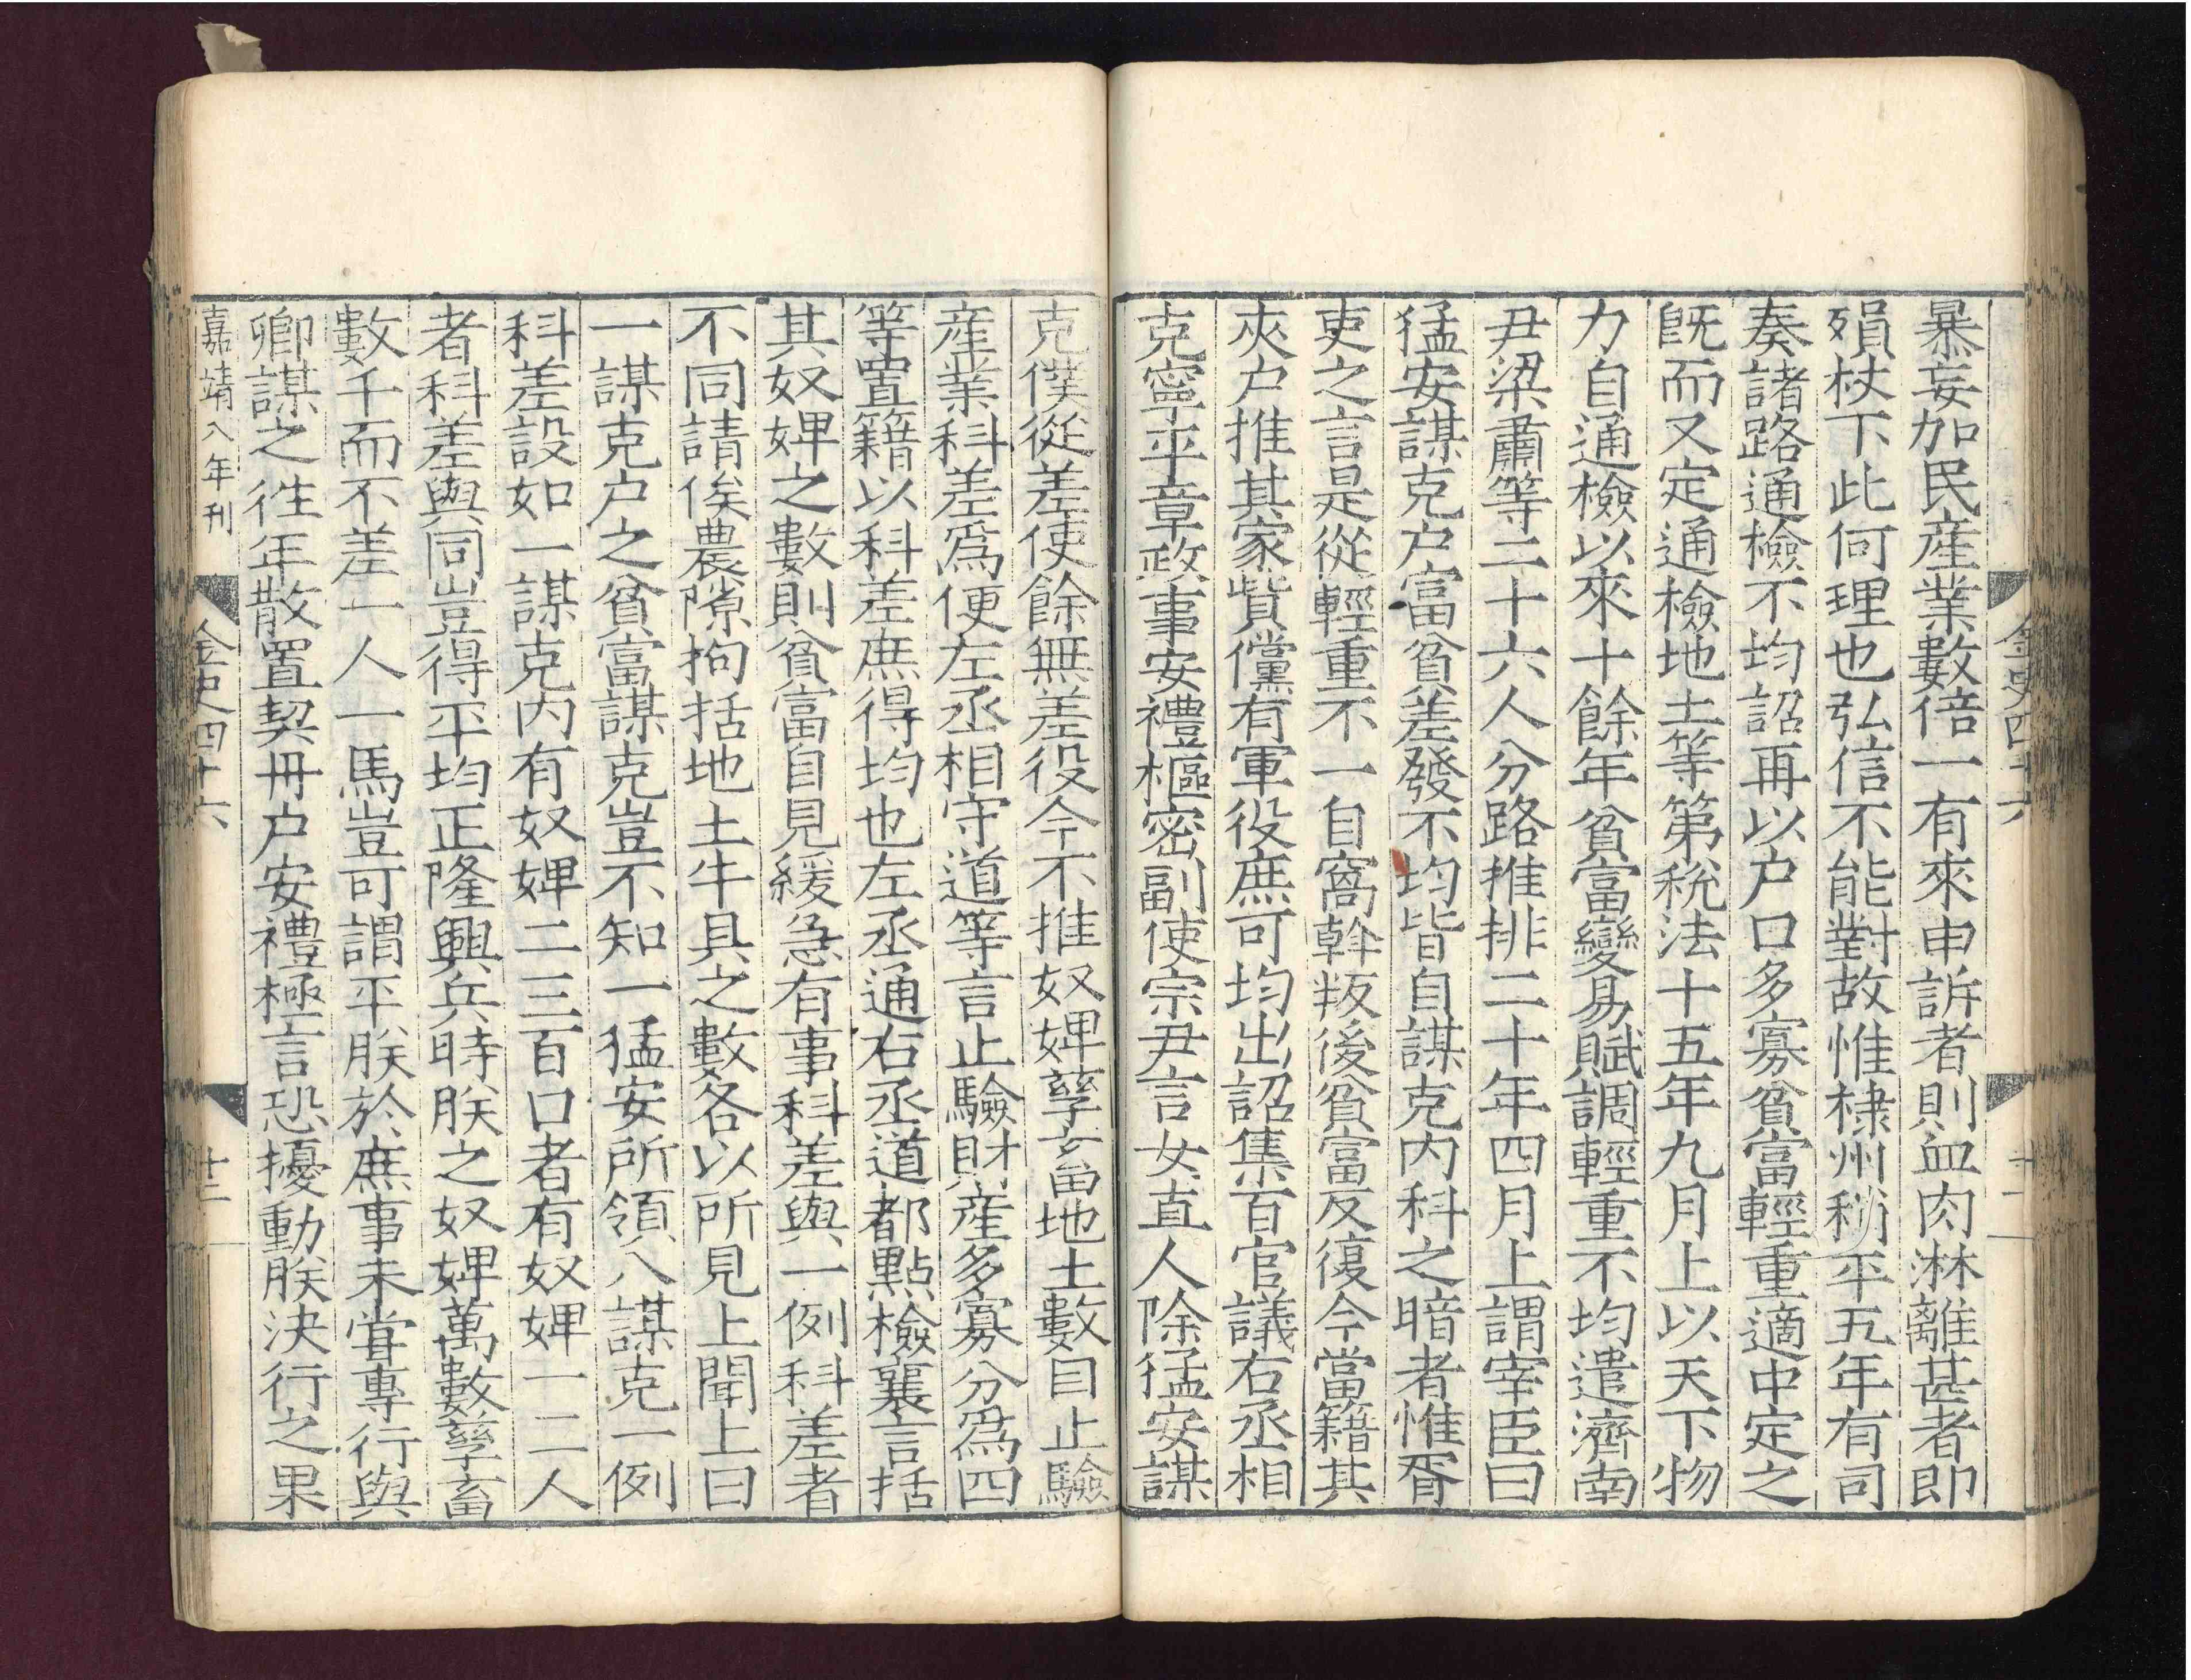 金史四十六
十二
暴妄加民産業數倍一有來申訴者則血肉淋離甚者即
殞杖下此何理也弘信不能對故惟棣州稍平五年有司
奏諸路通檢不均詔再以户口多寡貧富輕重適中定之
旣而又定通檢地土等第税法十五年九月上以天下物
力自通檢以來十餘年貧富變易賦調輕重不均遣濟南
尹梁肅等二十六人分路推排二十年四月上謂宰臣曰
猛安謀克户富貧差發不均皆自謀克内科之暗者惟胥
吏之言是從輕重不一自窩斡叛後貧富反復今當籍其
夾户推其家貲儻有軍役庶可均出詔集百官議右丞相
克寧平章政事安禮樞密副使宗尹言女直人除猛安謀
克僕從差使餘無差役今不推奴婢孳畜地土數目止驗
産業科差爲便左丞相守道等言止驗財産多寡分爲四
等置籍以科差庶得均也左丞通右丞道都㸃檢襄言括
其奴婢之數則貧富自見緩急有事科差與一例科差者
不同請俟農隙拘括地土牛具之數各以所見上聞上曰
一謀克户之貧富謀克豈不知一猛安所領八謀克一例
科差設如一謀克内有奴婢二三百口者有奴婢一二人
者科差與同豈得平均正隆興兵時朕之奴婢萬數孳畜
數千而不差一人一馬豈可謂平朕於庶事未甞專行與
卿謀之徃年散置契丹户安禮極言恐擾動朕決行之果
嘉靖八年刊
金史四十六
十二